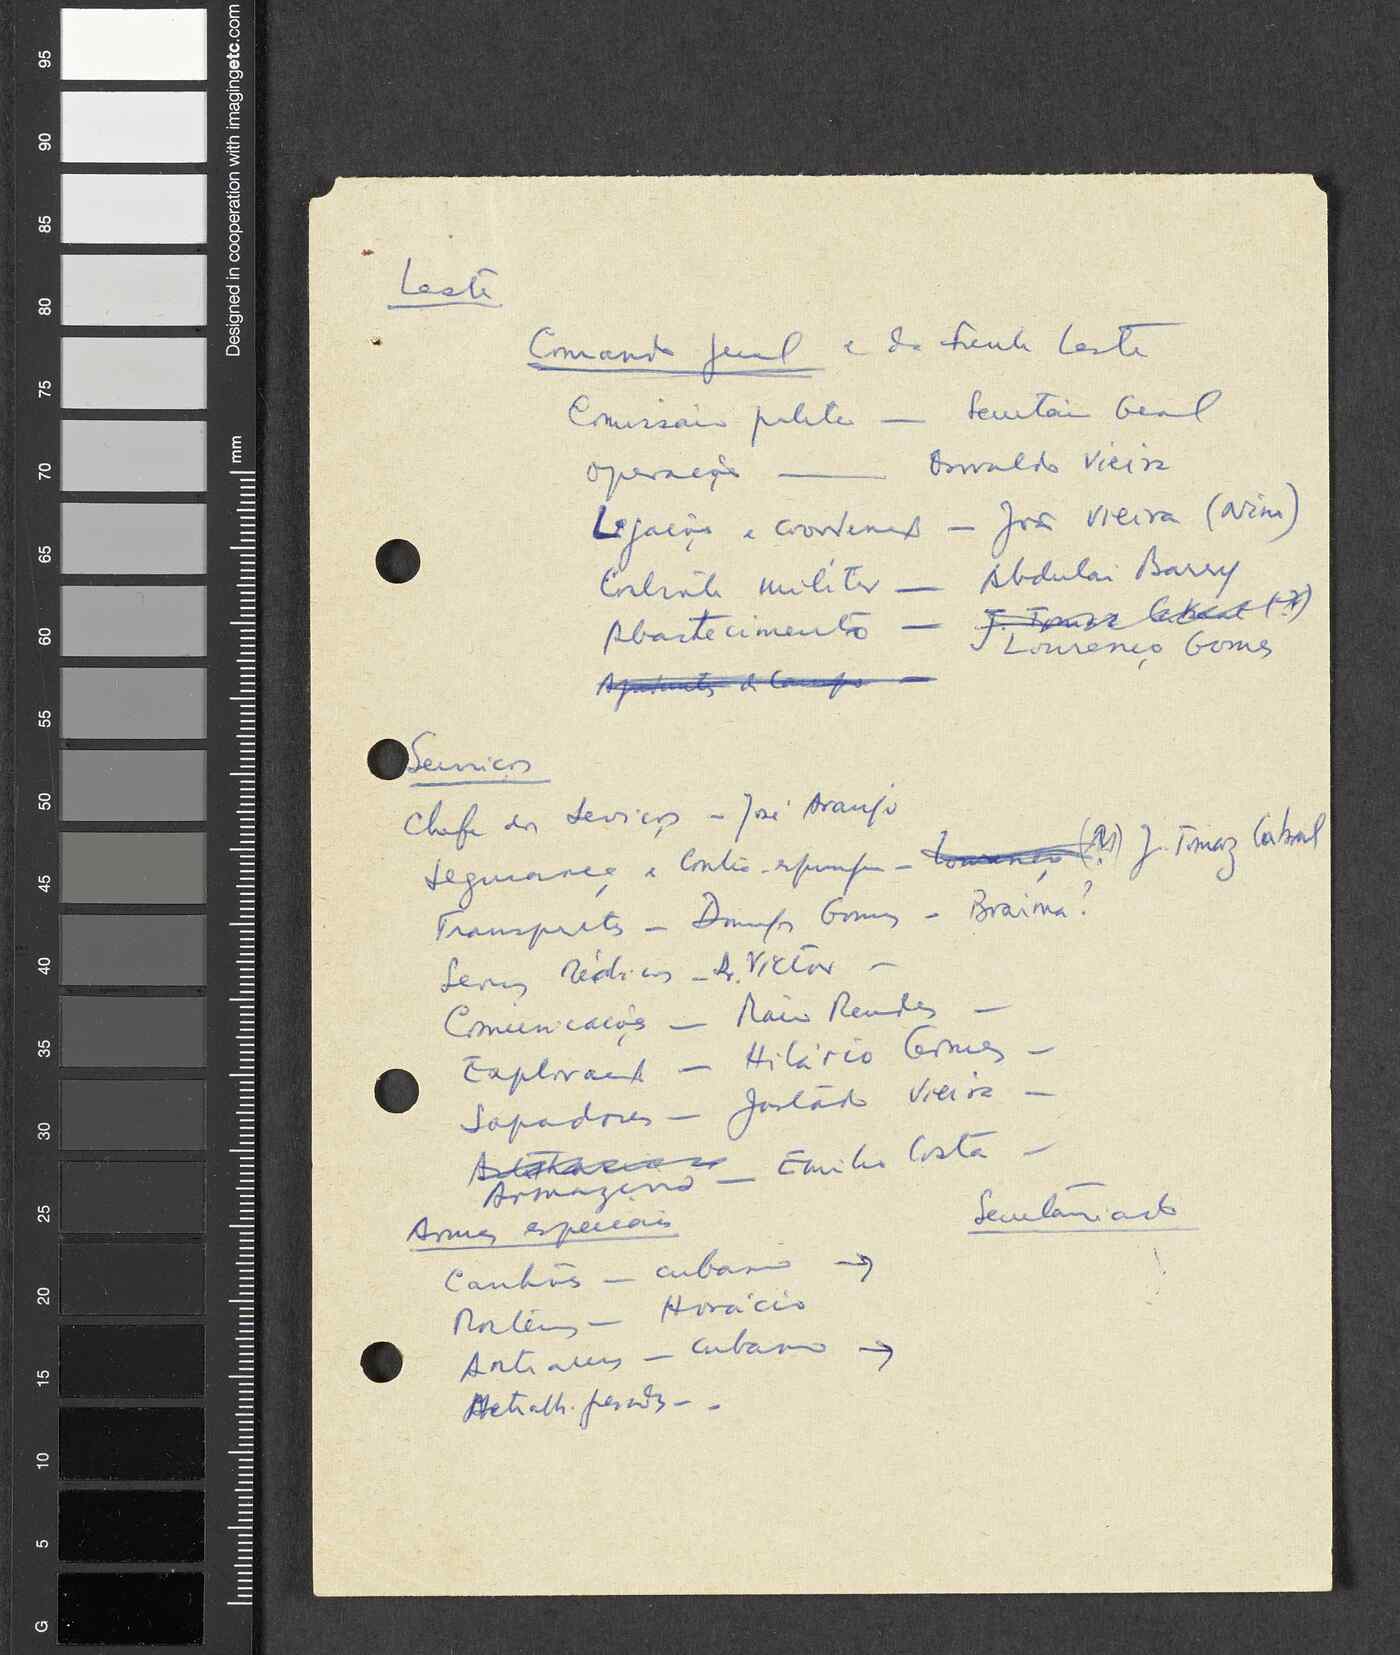 Leste
Comando geral e da Frente Leste
Comissário político — Secretário Geral
Operações — Osvaldo Vieira
Ligações e coordenação — João Vieira (Nino)
Controle militar — Abdulai Barry
Abastecimento — J. Tomaz Cabral (?)
Lourenço Gomes
Serviços
Chefe dos Serviços - José Araujo
Segurança e Contra-espionagem - Lourenço (?) J. Tomaz Cabral
Transportes - Domingos Gomes - Braima?
Serviços Médicos - Dr. Victor -
Comunicações — Mário Mendes -
Exploração — Hilário Gomes -
Sapadores — Joaosinho Vieira -
Armazéns — Emilio Costa -
Armas especiais
Secretariado
Canhões — cubano →
Morteiros — Horácio
Anti aéreas — cubano →
Metralh. pesadas - -
95
90
85
80
75
70
65
60
55
50
45
40
35
30
25
20
15
10
5
G
Designed in cooperation with imagingetc.com
mm